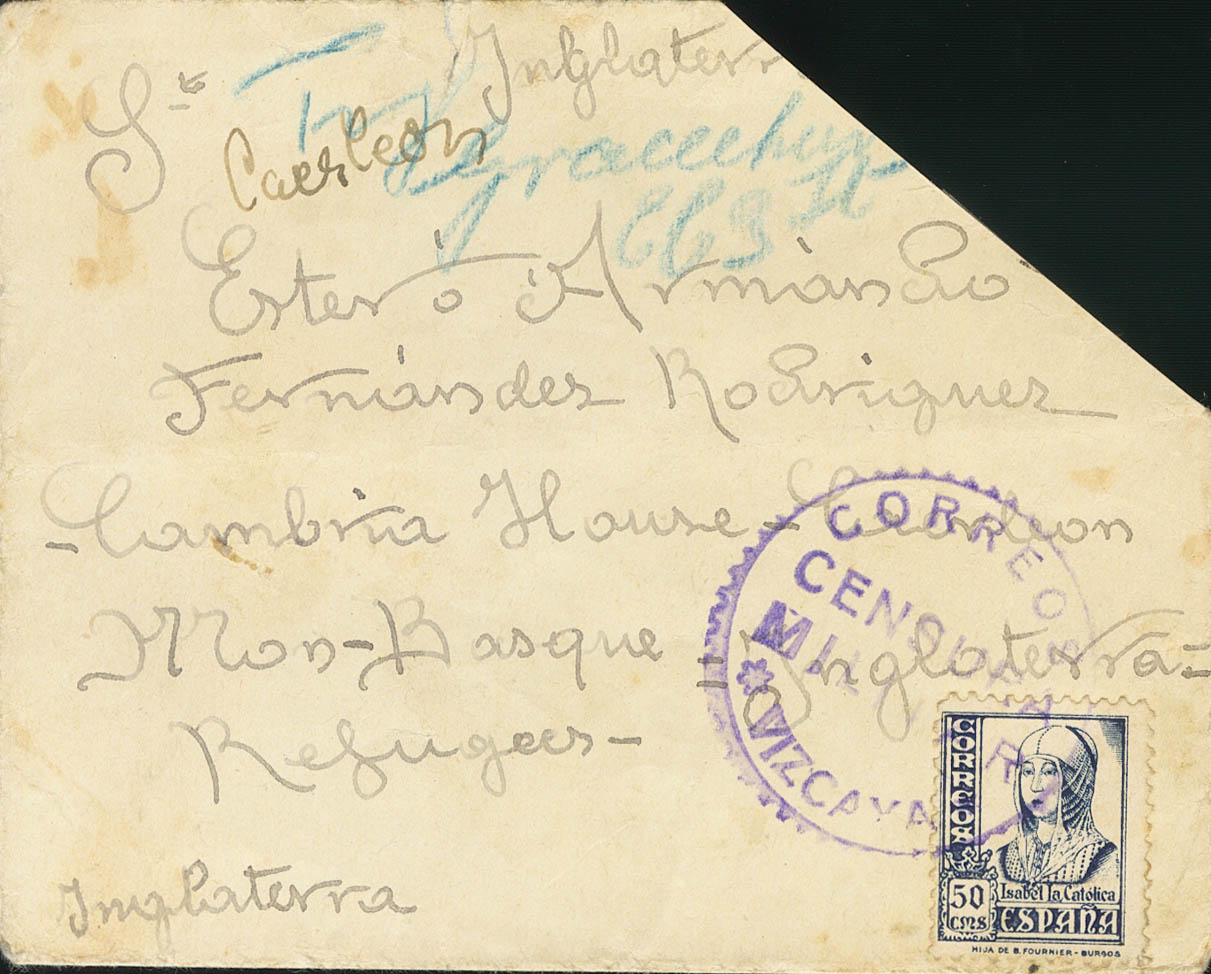 Inglaterr
Sr
Caerleon
663 II
Ester ó Armando
Fernández Rodriguez
-Cambria House - Cearleon
Mon-Basque = Inglaterra=
Refugees-
Inglaterra
CORREOS
CENSURA
MILITAR
VIZCAYA
CORREOS
50
CMS
Isabel la Católica
ESPAÑA
HIJA DE B. FOURNIER - BURGOS